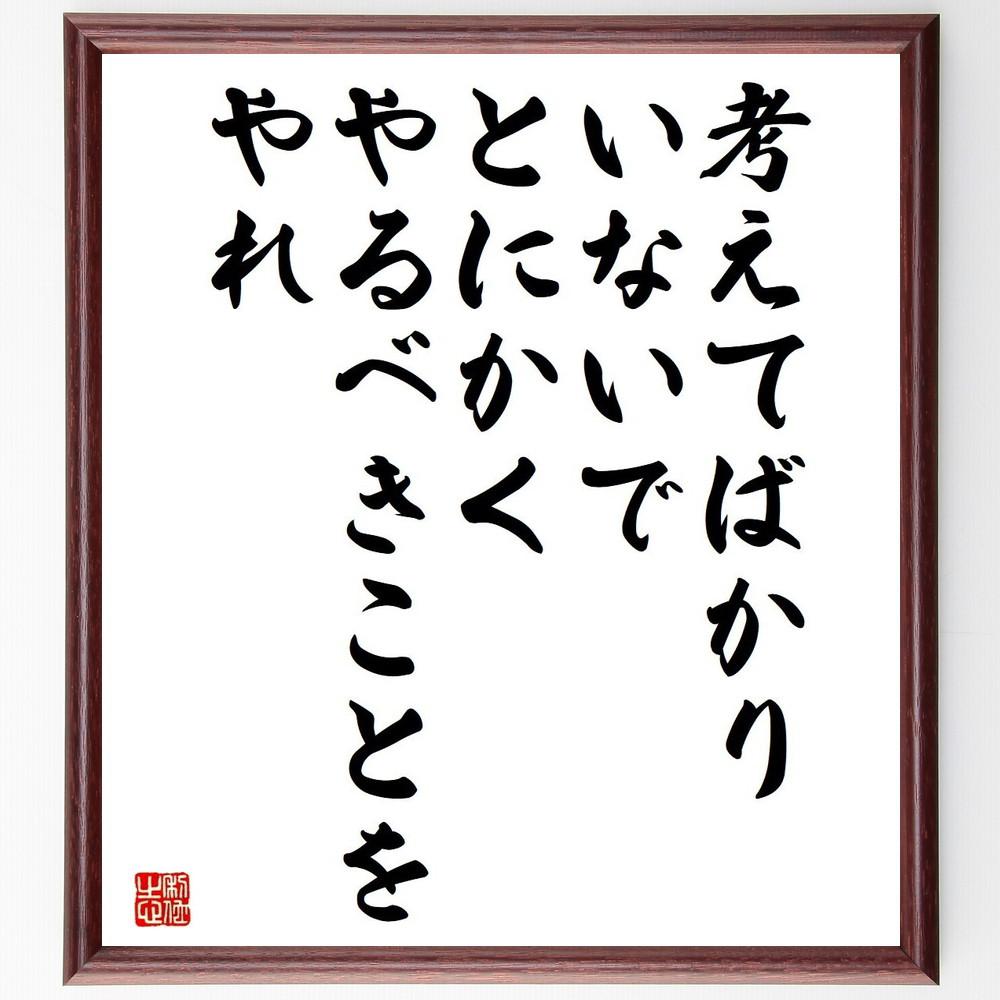 考えてばかり
いないで
とにかく
やるべきことを
やれ